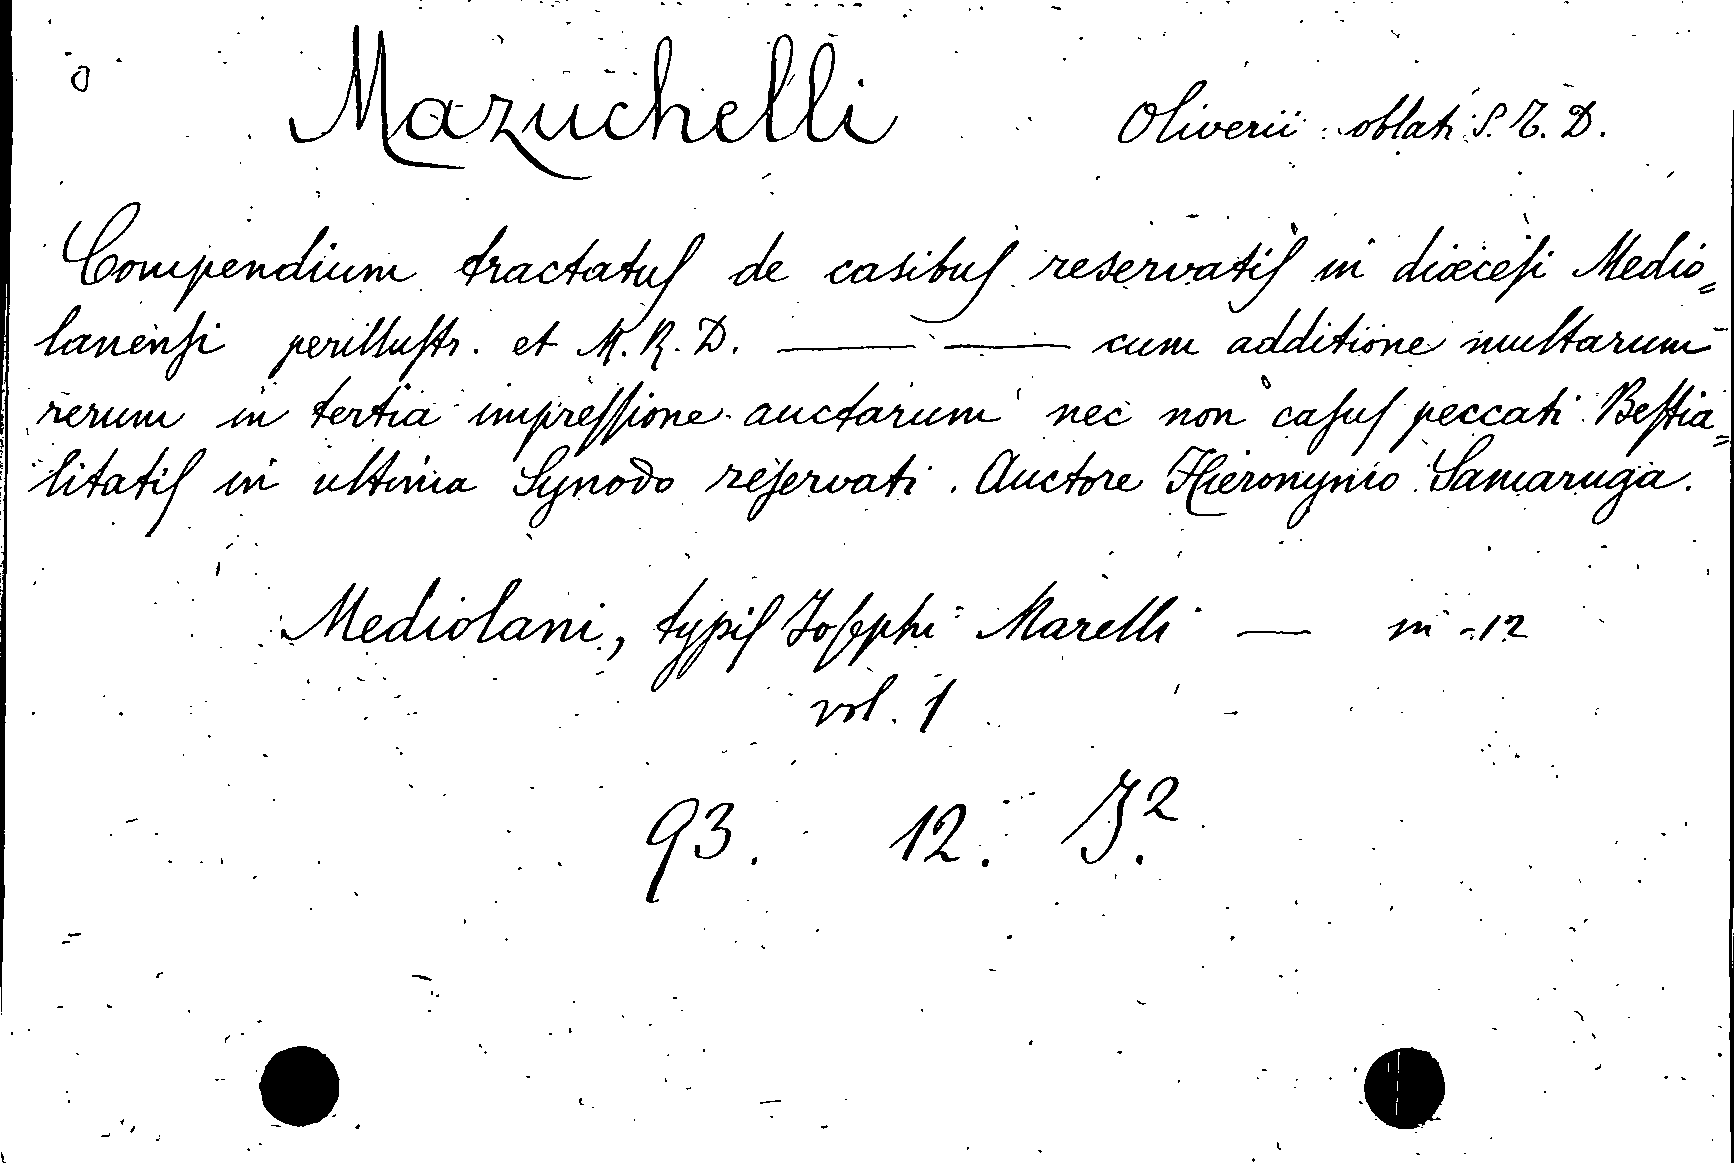 Mazuchelli Oliverii oblati S. T. D.
Compendium tractatuſ de casibuſ reservatiſ in diœceſi Medio=
lanenſi perilluſtr. et M. R. D. —— —— cum additione multarum
rerum in tertia impreſſione auctarum nec non caſuſ peccati Beſtia=
litatiſ in ultima Synodo reſervati. Auctore Hieronymo Samaruga.
Mediolani, typiſ Joſephi Marelli — in-12
vol. 1
93. 12. J.²